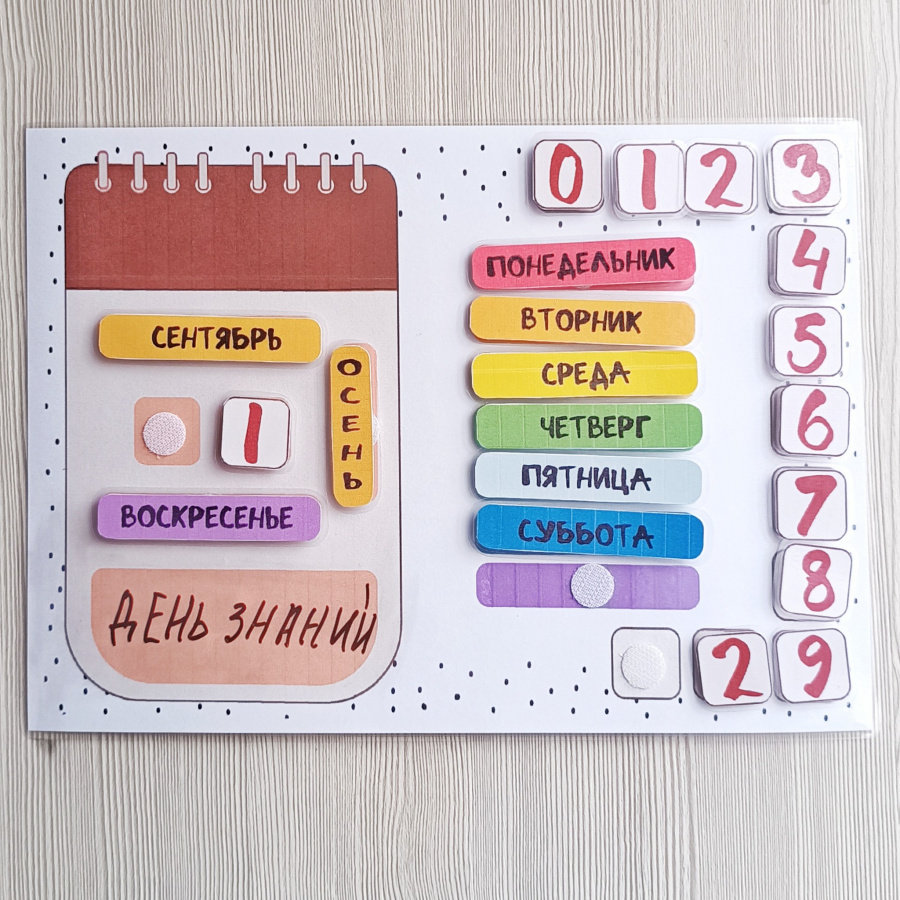 СЕНТЯБРЬ
1
ОСЕНЬ
ВОСКРЕСЕНЬЕ
ДЕНЬ ЗНАНИЙ
ПОНЕДЕЛЬНИК
ВТОРНИК
СРЕДА
ЧЕТВЕРГ
ПЯТНИЦА
СУББОТА
0 1 2 3
4
5
6
7
8
2 9